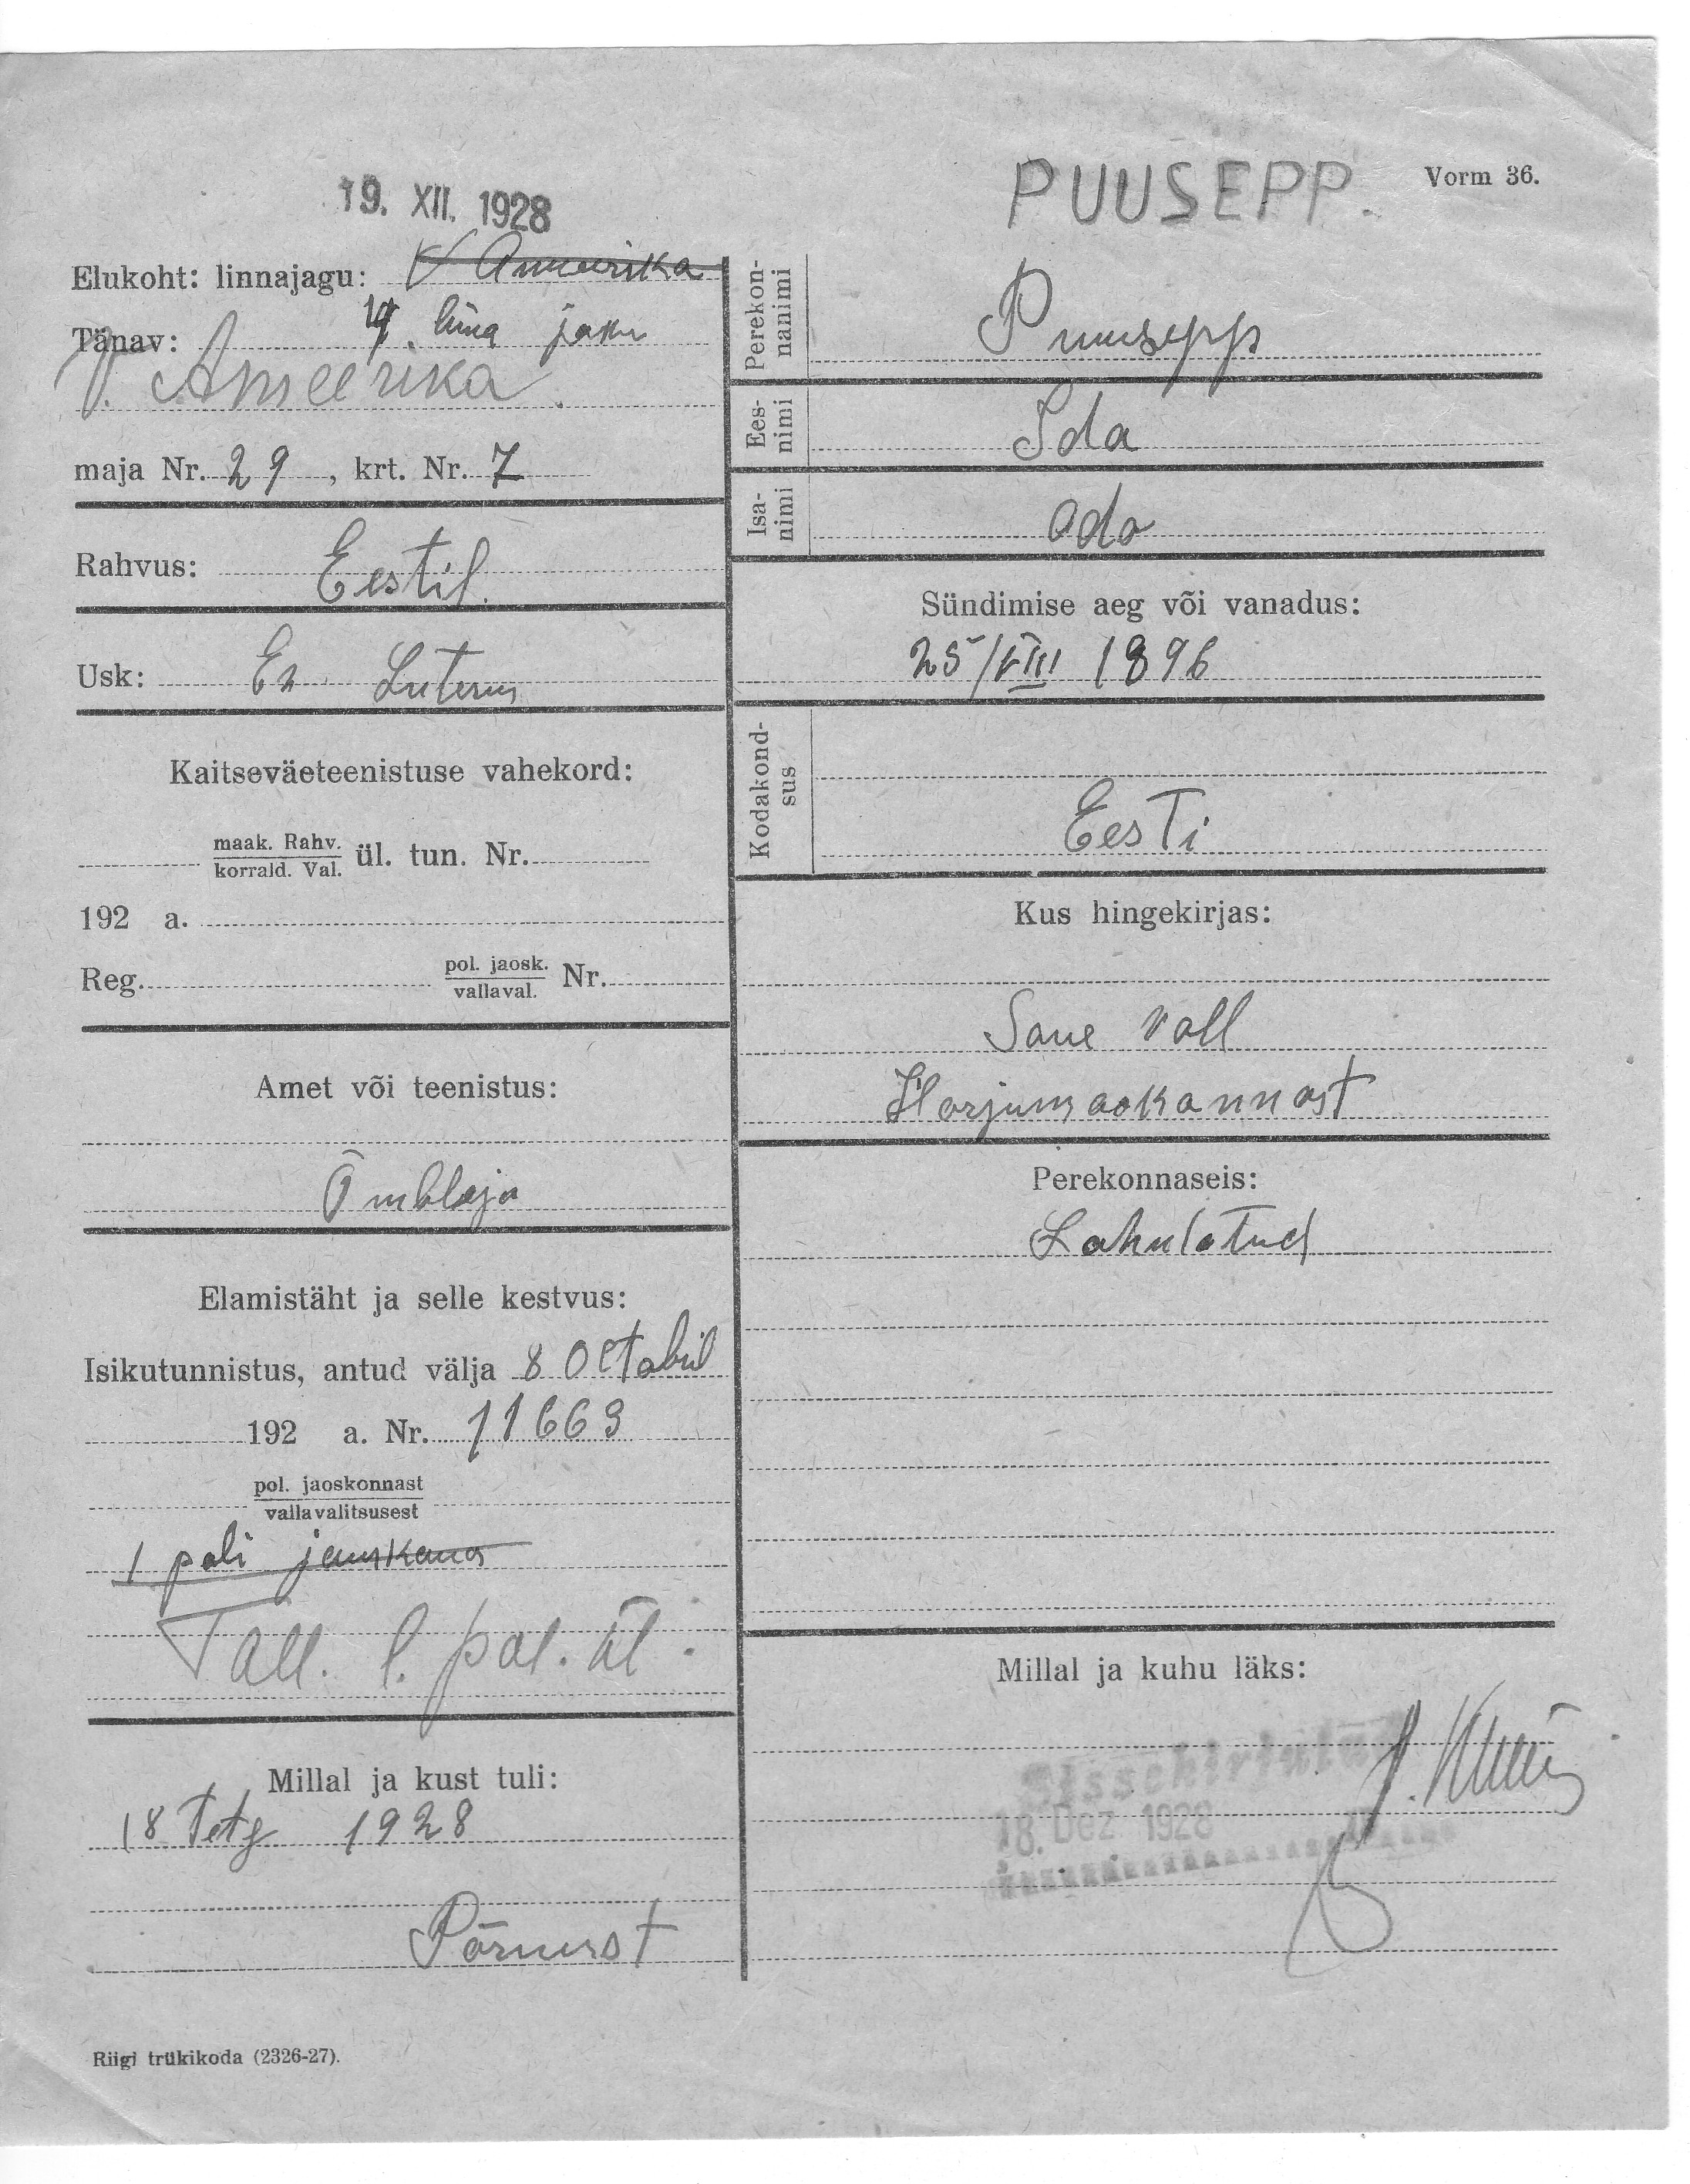 19. XII. 1928
PUUSEPP.
Vorm 36.
Elukoht: linnajagu: V Ameerika
Tänav: linna jaku
V. Ameerika
maja Nr. 29, krt. Nr. 7
Rahvus: Eestil.
Usk: Ev. Luterus
Kaitseväeteenistuse vahekord:
maak. Rahv.
korrald. Val.
ül. tun. Nr.
192 a.
Reg. pol. jaosk.
vallaval.
Nr.
Amet või teenistus:
Õmbleja
Elamistäht ja selle kestvus:
Isikutunnistus, antud välja 8 Octobril
192 a. Nr. 11663
pol. jaoskonnast
vallavalitsusest
1 poli jauskona
Tall. l. pol. ül.
Millal ja kust tuli:
18 Tets 1928
Pärnust
Perekonnanimi
Puusepp
Eesnimi
Ida
Isanimi
Ado
Sündimise aeg või vanadus:
25/VIII 1896
Kodakondsus
Eesti
Kus hingekirjas:
Saue vall
Harjumaakonnast
Perekonnaseis:
Lahulatud
Millal ja kuhu läks:
Sissekirjutatud
18. Dez 1928
Riigi trükikoda (2326-27).